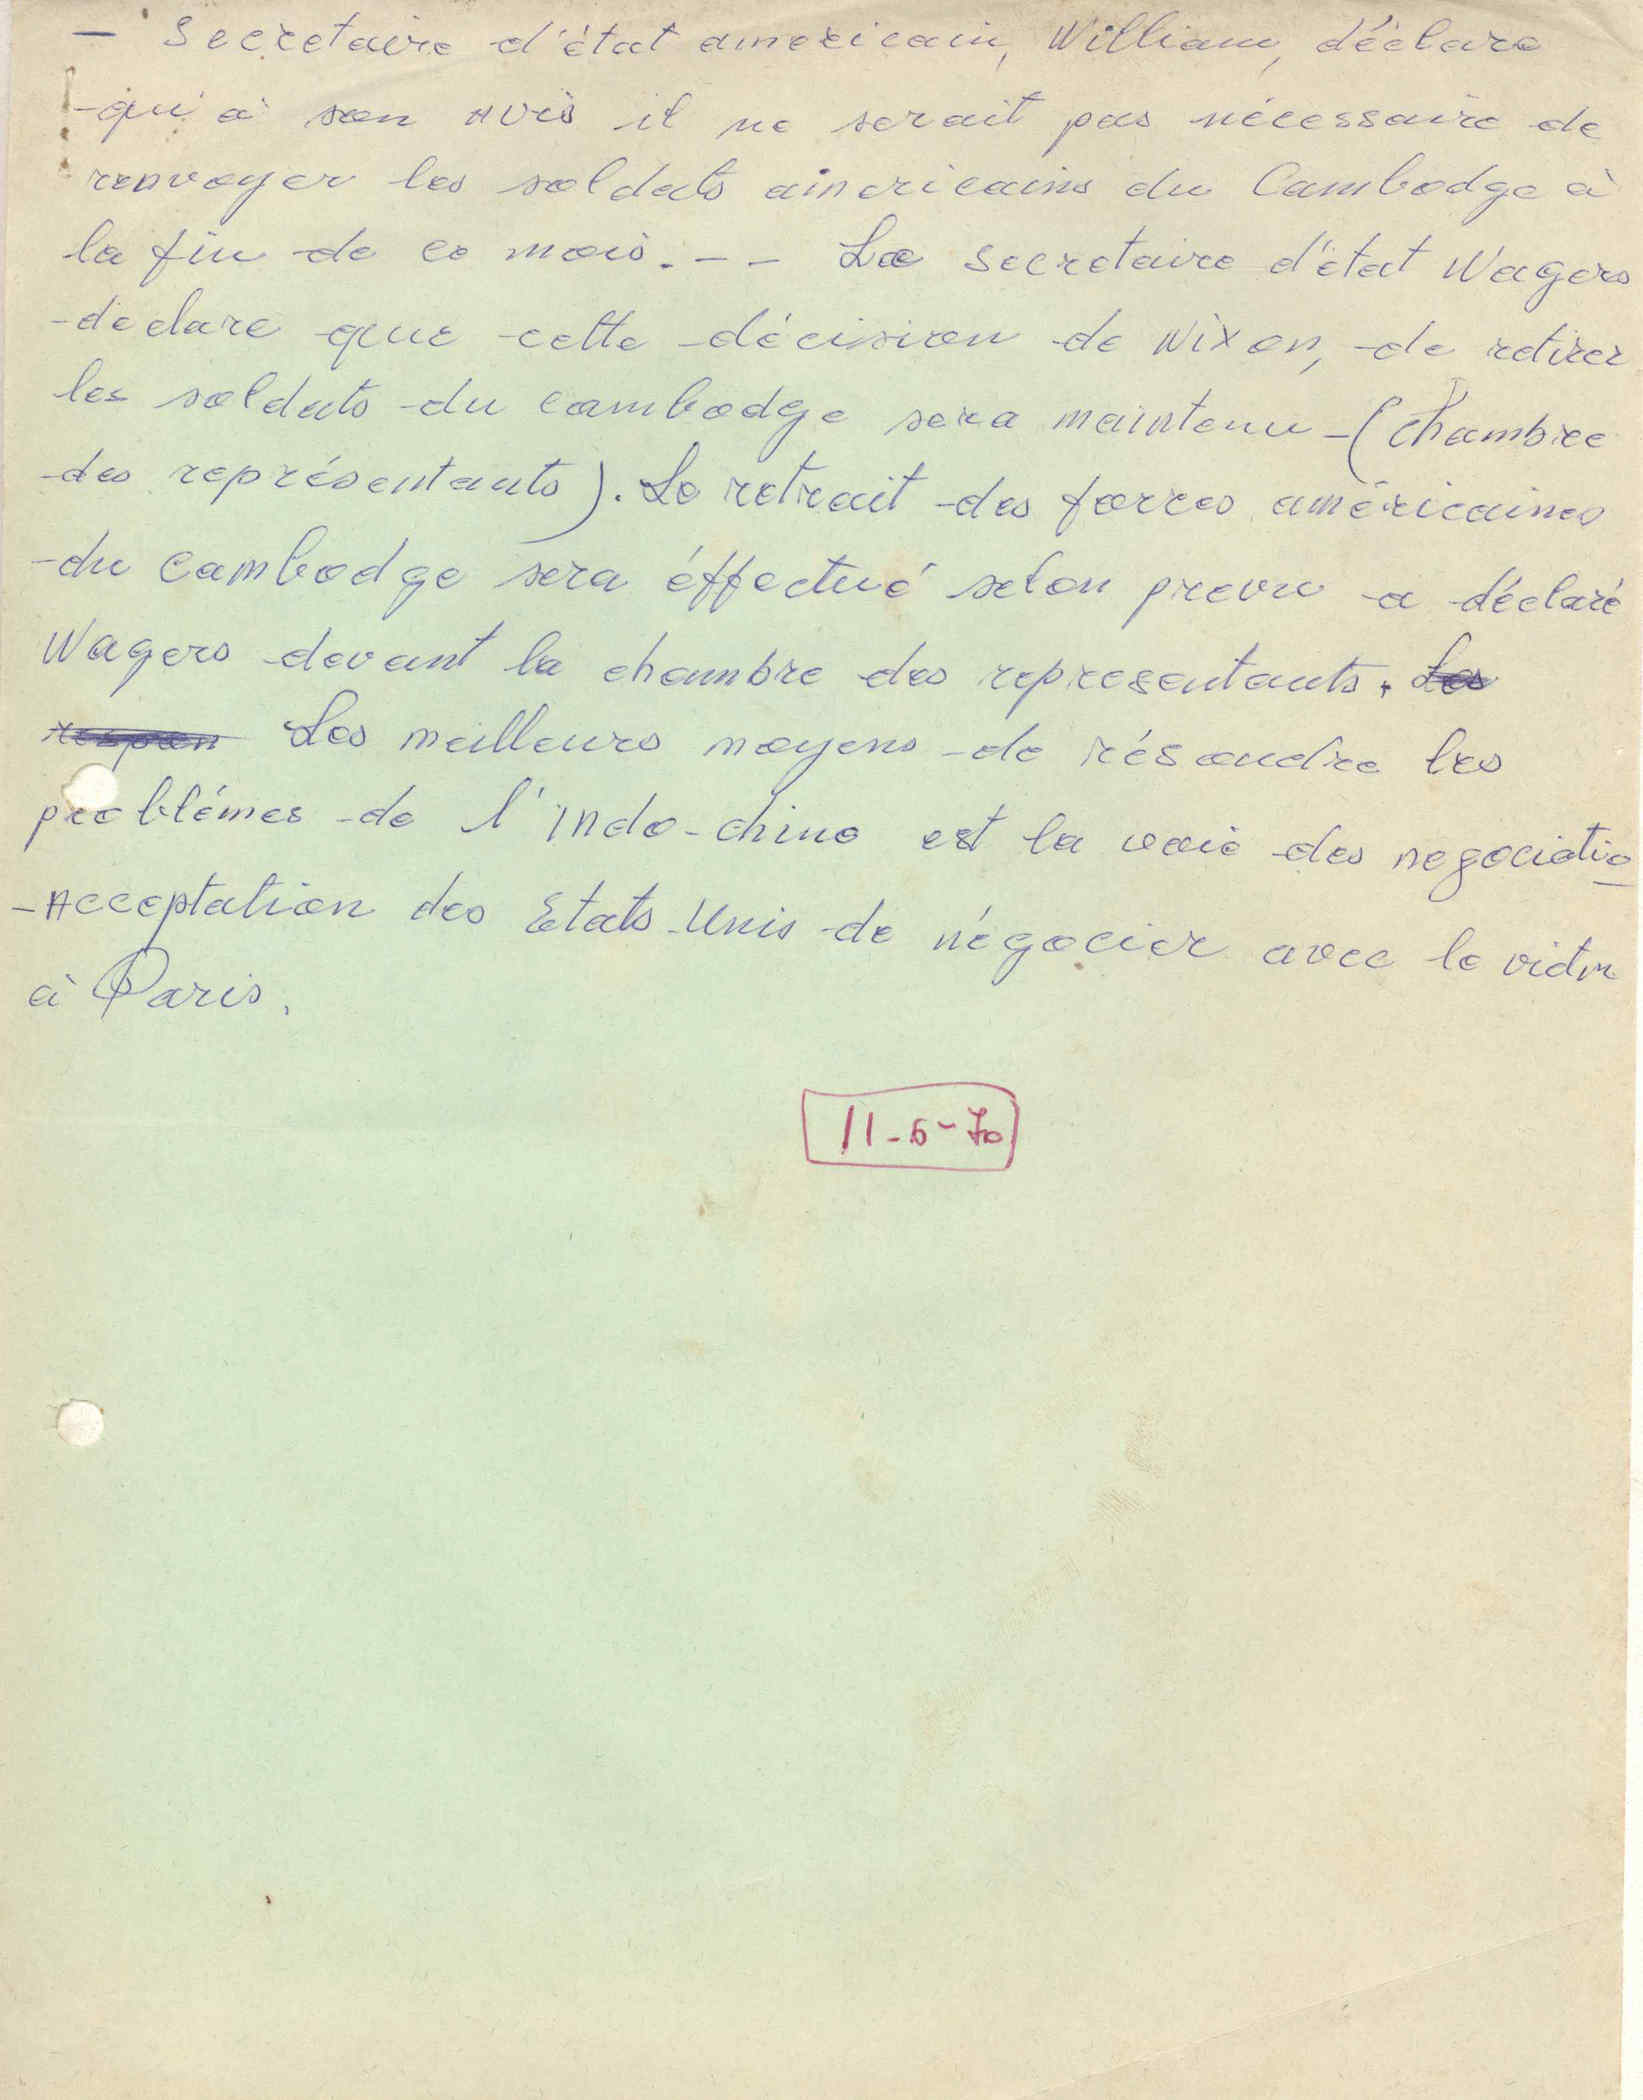 – Secretaire d'état americain, William, déclare
qu'à son avis il ne serait pas nécessaire de
renvoyer les soldats americains du Cambodge à
la fin de ce mois. - - Le secretaire d'état Wagers
declare que cette décision de Nixon, de retirer
les soldats du cambodge sera maintenu - (chambre
des représentants). Le retrait des forces américaines
du cambodge sera éffectué selon prevu a déclaré
Wagers devant la chambre des representants. Les
respon Les meilleurs moyens de résoudre les
problémes de l'indo-chine est la voie des negociatio
- Acceptation des Etats-Unis de négocier avec le vietn
à Paris.
11-5-70